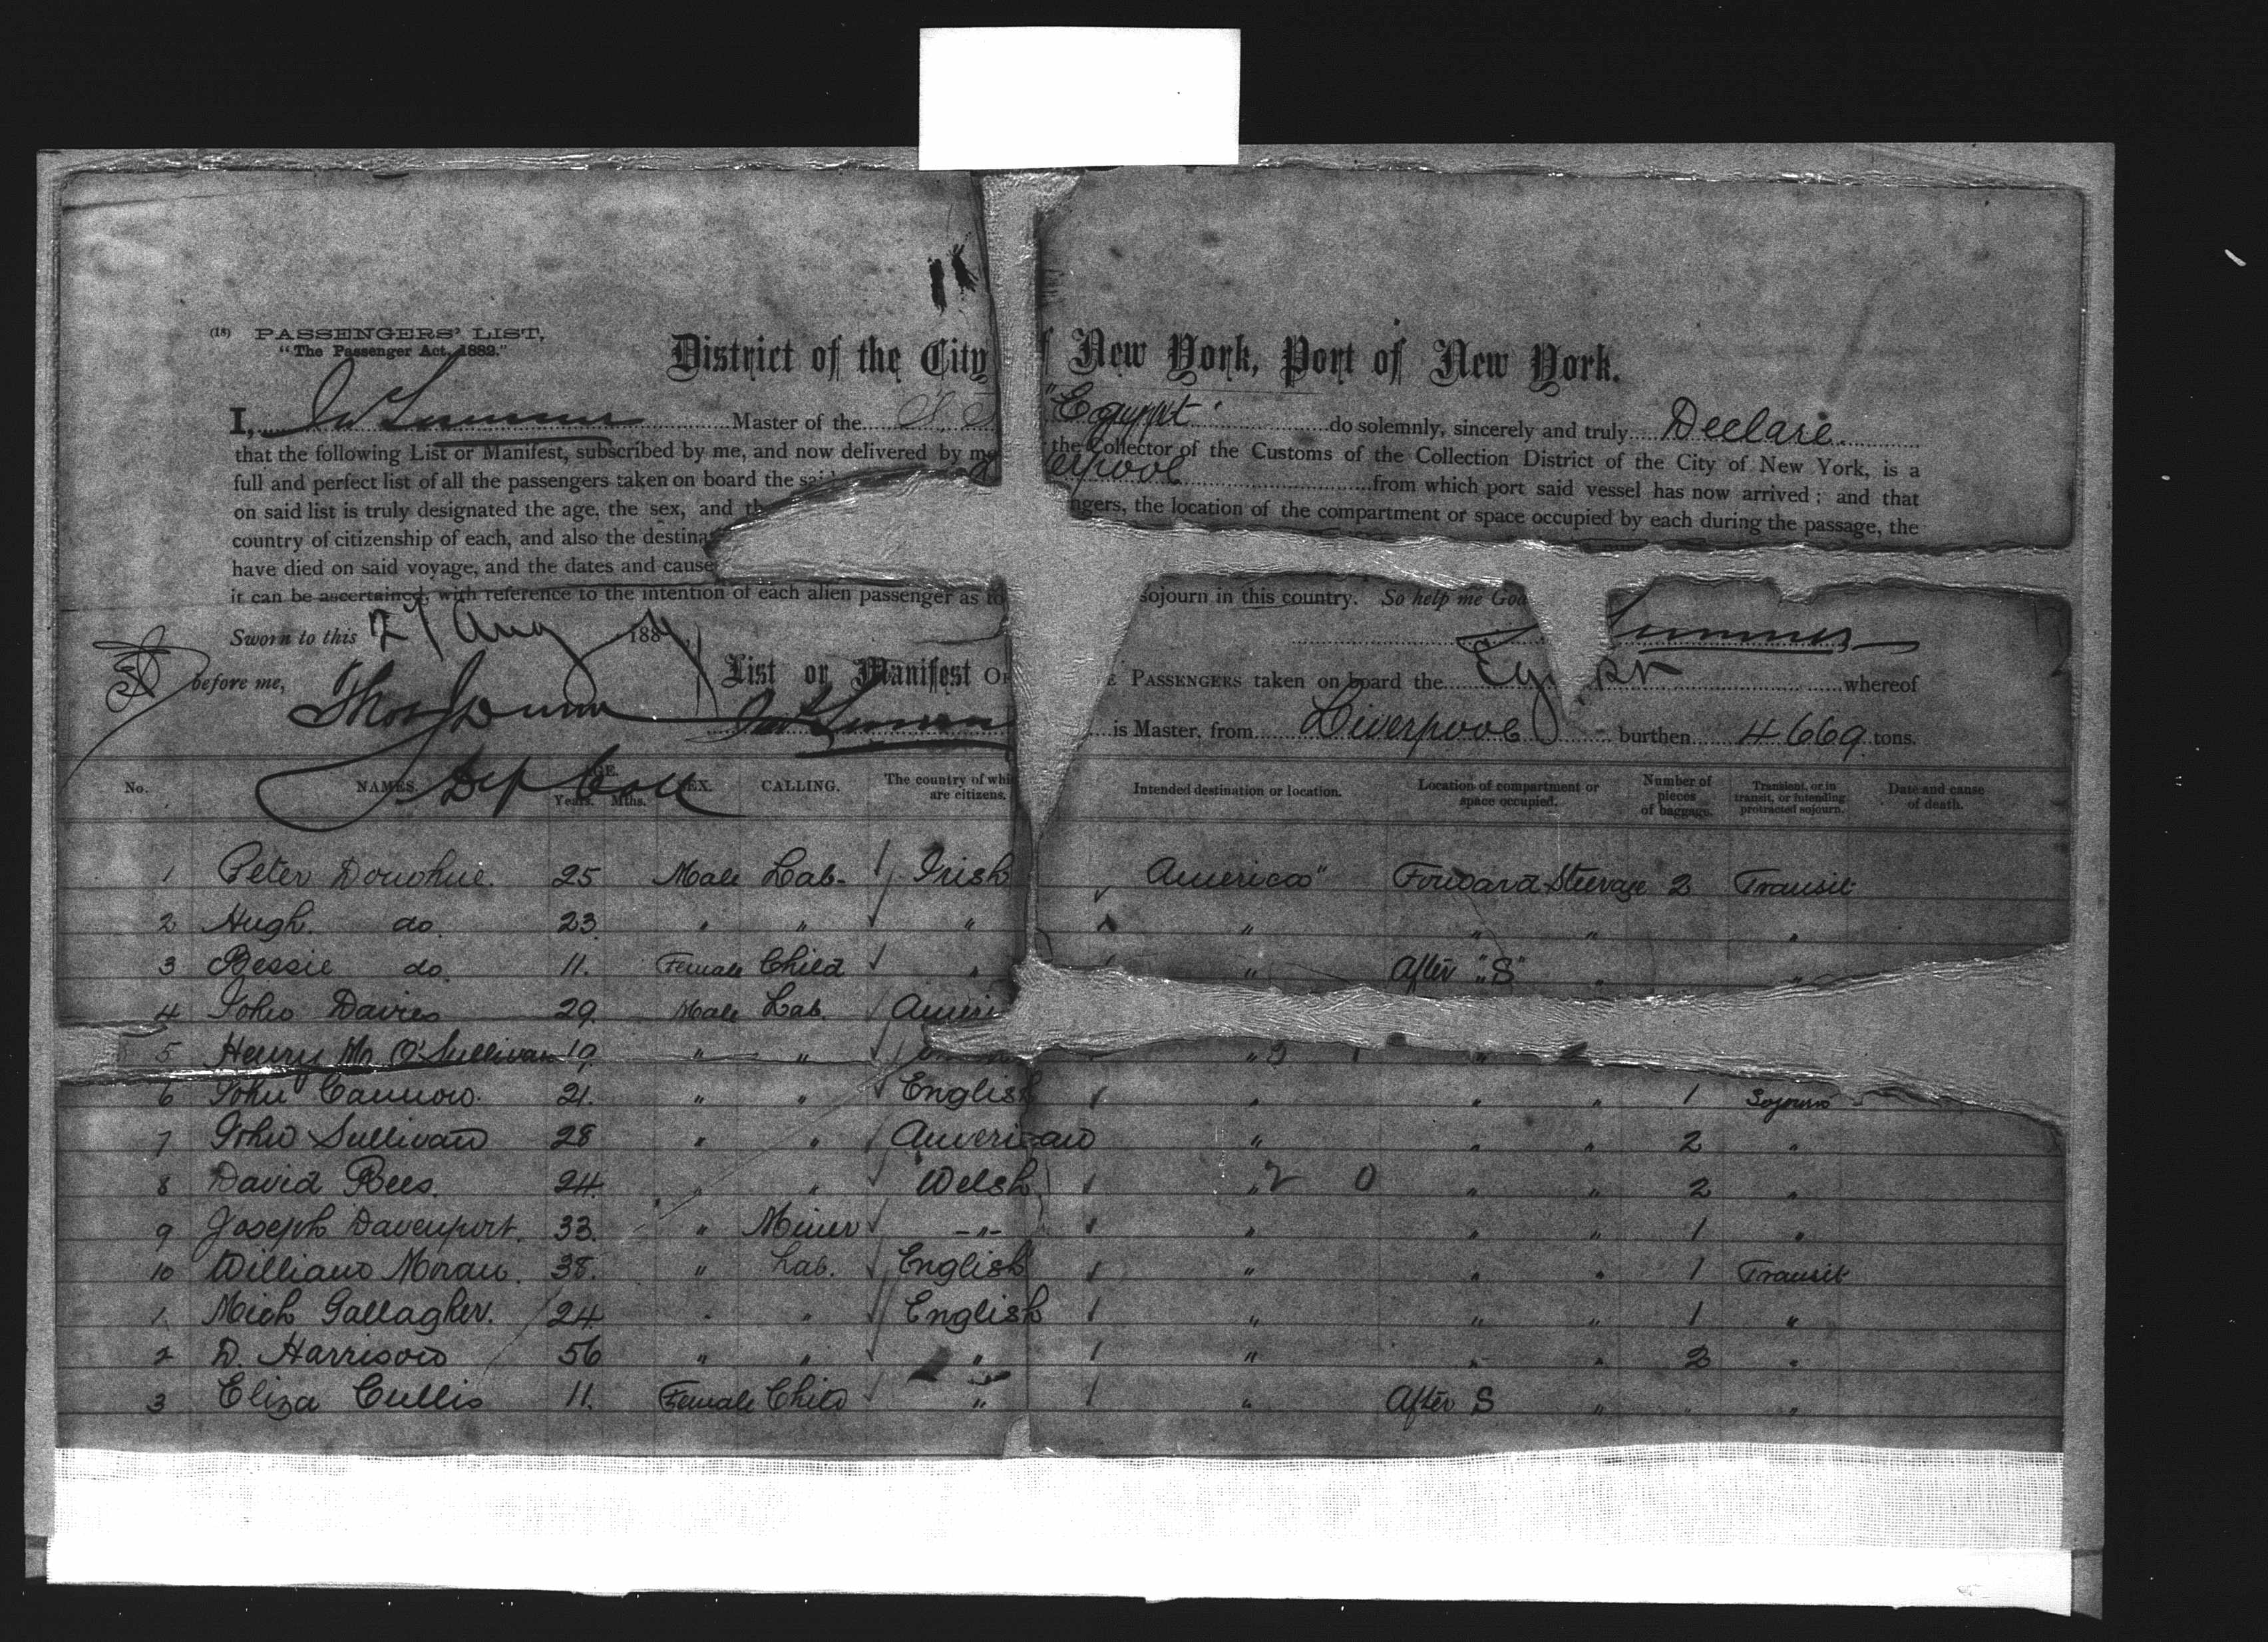 (18) PASSENGERS' LIST,
"The Passenger Act, 1882."
District of the City of New York, Port of New York.
I, Master of the S.S. "Egypt" do solemnly, sincerely and truly Declare
that the following List or Manifest, subscribed by me, and now delivered by me the Collector of the Customs of the Collection District of the City of New York, is a
full and perfect list of all the passengers taken on board the erpool from which port said vessel has now arrived; and that
on said list is truly designated the age, the sex, and ngers, the location of the compartment or space occupied by each during the passage, the
country of citizenship of each, and also the destina
have died on said voyage, and the dates and cause
it can be ascertained, with reference to the intention of each alien passenger as to sojourn in this country. So help me God
Sworn to this 27 Aug 188
before me, List or Manifest OF PASSENGERS taken on board the Egypt whereof
is Master, from Liverpool burthen 4669 tons.
Dep Coll
No. NAMES. AGE. Years. Mths. SEX. CALLING. The country of whi are citizens. Intended destination or location. Location of compartment or space occupied. Number of pieces of baggage. Transient, or in transit, or intending protracted sojourn. Date and cause of death.
1 Peter Donohue. 25 Male Lab. Irish America" Forward Steerage 2 Transit
2 Hugh do. 23 " " " " " " "
3 Bessie do. 11. Female Child " " After "S" " "
4 John Davies 29. Male Lab. Ameri
5 Henry Mr. O'Sullivan 19. " " " "
6 John Cannon. 21. " " English " " " 1 Sojourn
7 John Sullivan 28 " " American " " " 2 "
8 David Rees. 24. " " Welsh " 2 0 " " 2 "
9 Joseph Davenport. 33. " Miner -"- " " " 1 "
10 William Moran. 38. " Lab. English " " " 1 Transit
1 Mich Gallagher. 24. " " English " " " 1 "
2 D. Harrison 56 " " " " " " 2 "
3 Eliza Cullis 11. Female Child " " After S " "